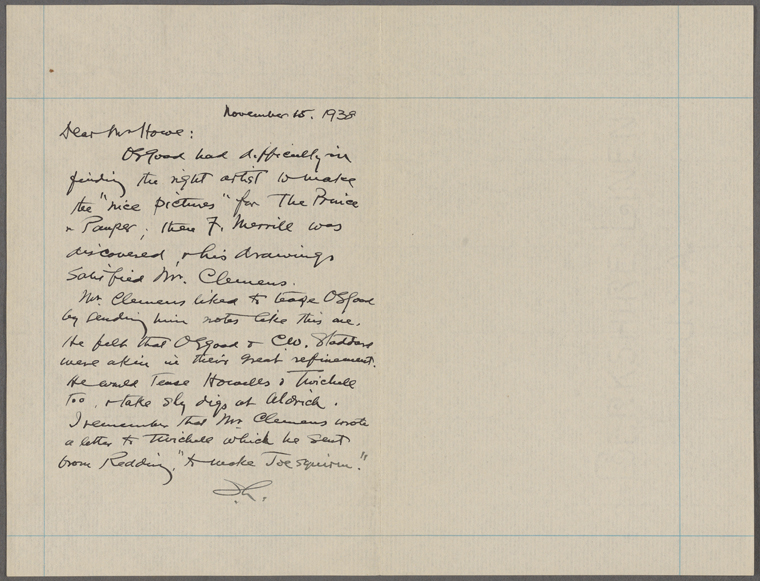 November 15. 1938
Dear Mr Howe:
Osgood had difficulty in
finding the right artist to make
the "nice pictures" for The Prince
& Pauper; then F. Merrill was
discovered, & his drawings
satisfied Mr. Clemens.
Mr. Clemens liked to tease Osgood
by sending him notes like this one.
He felt that Osgood & C.W. Stoddard
were akin in their great refinement.
He would tease Howells & Twichell
too, & take sly digs at Aldrich.
I remember that Mr Clemens wrote
a letter to Twichell which he sent
from Redding, "to make Joe squirm."